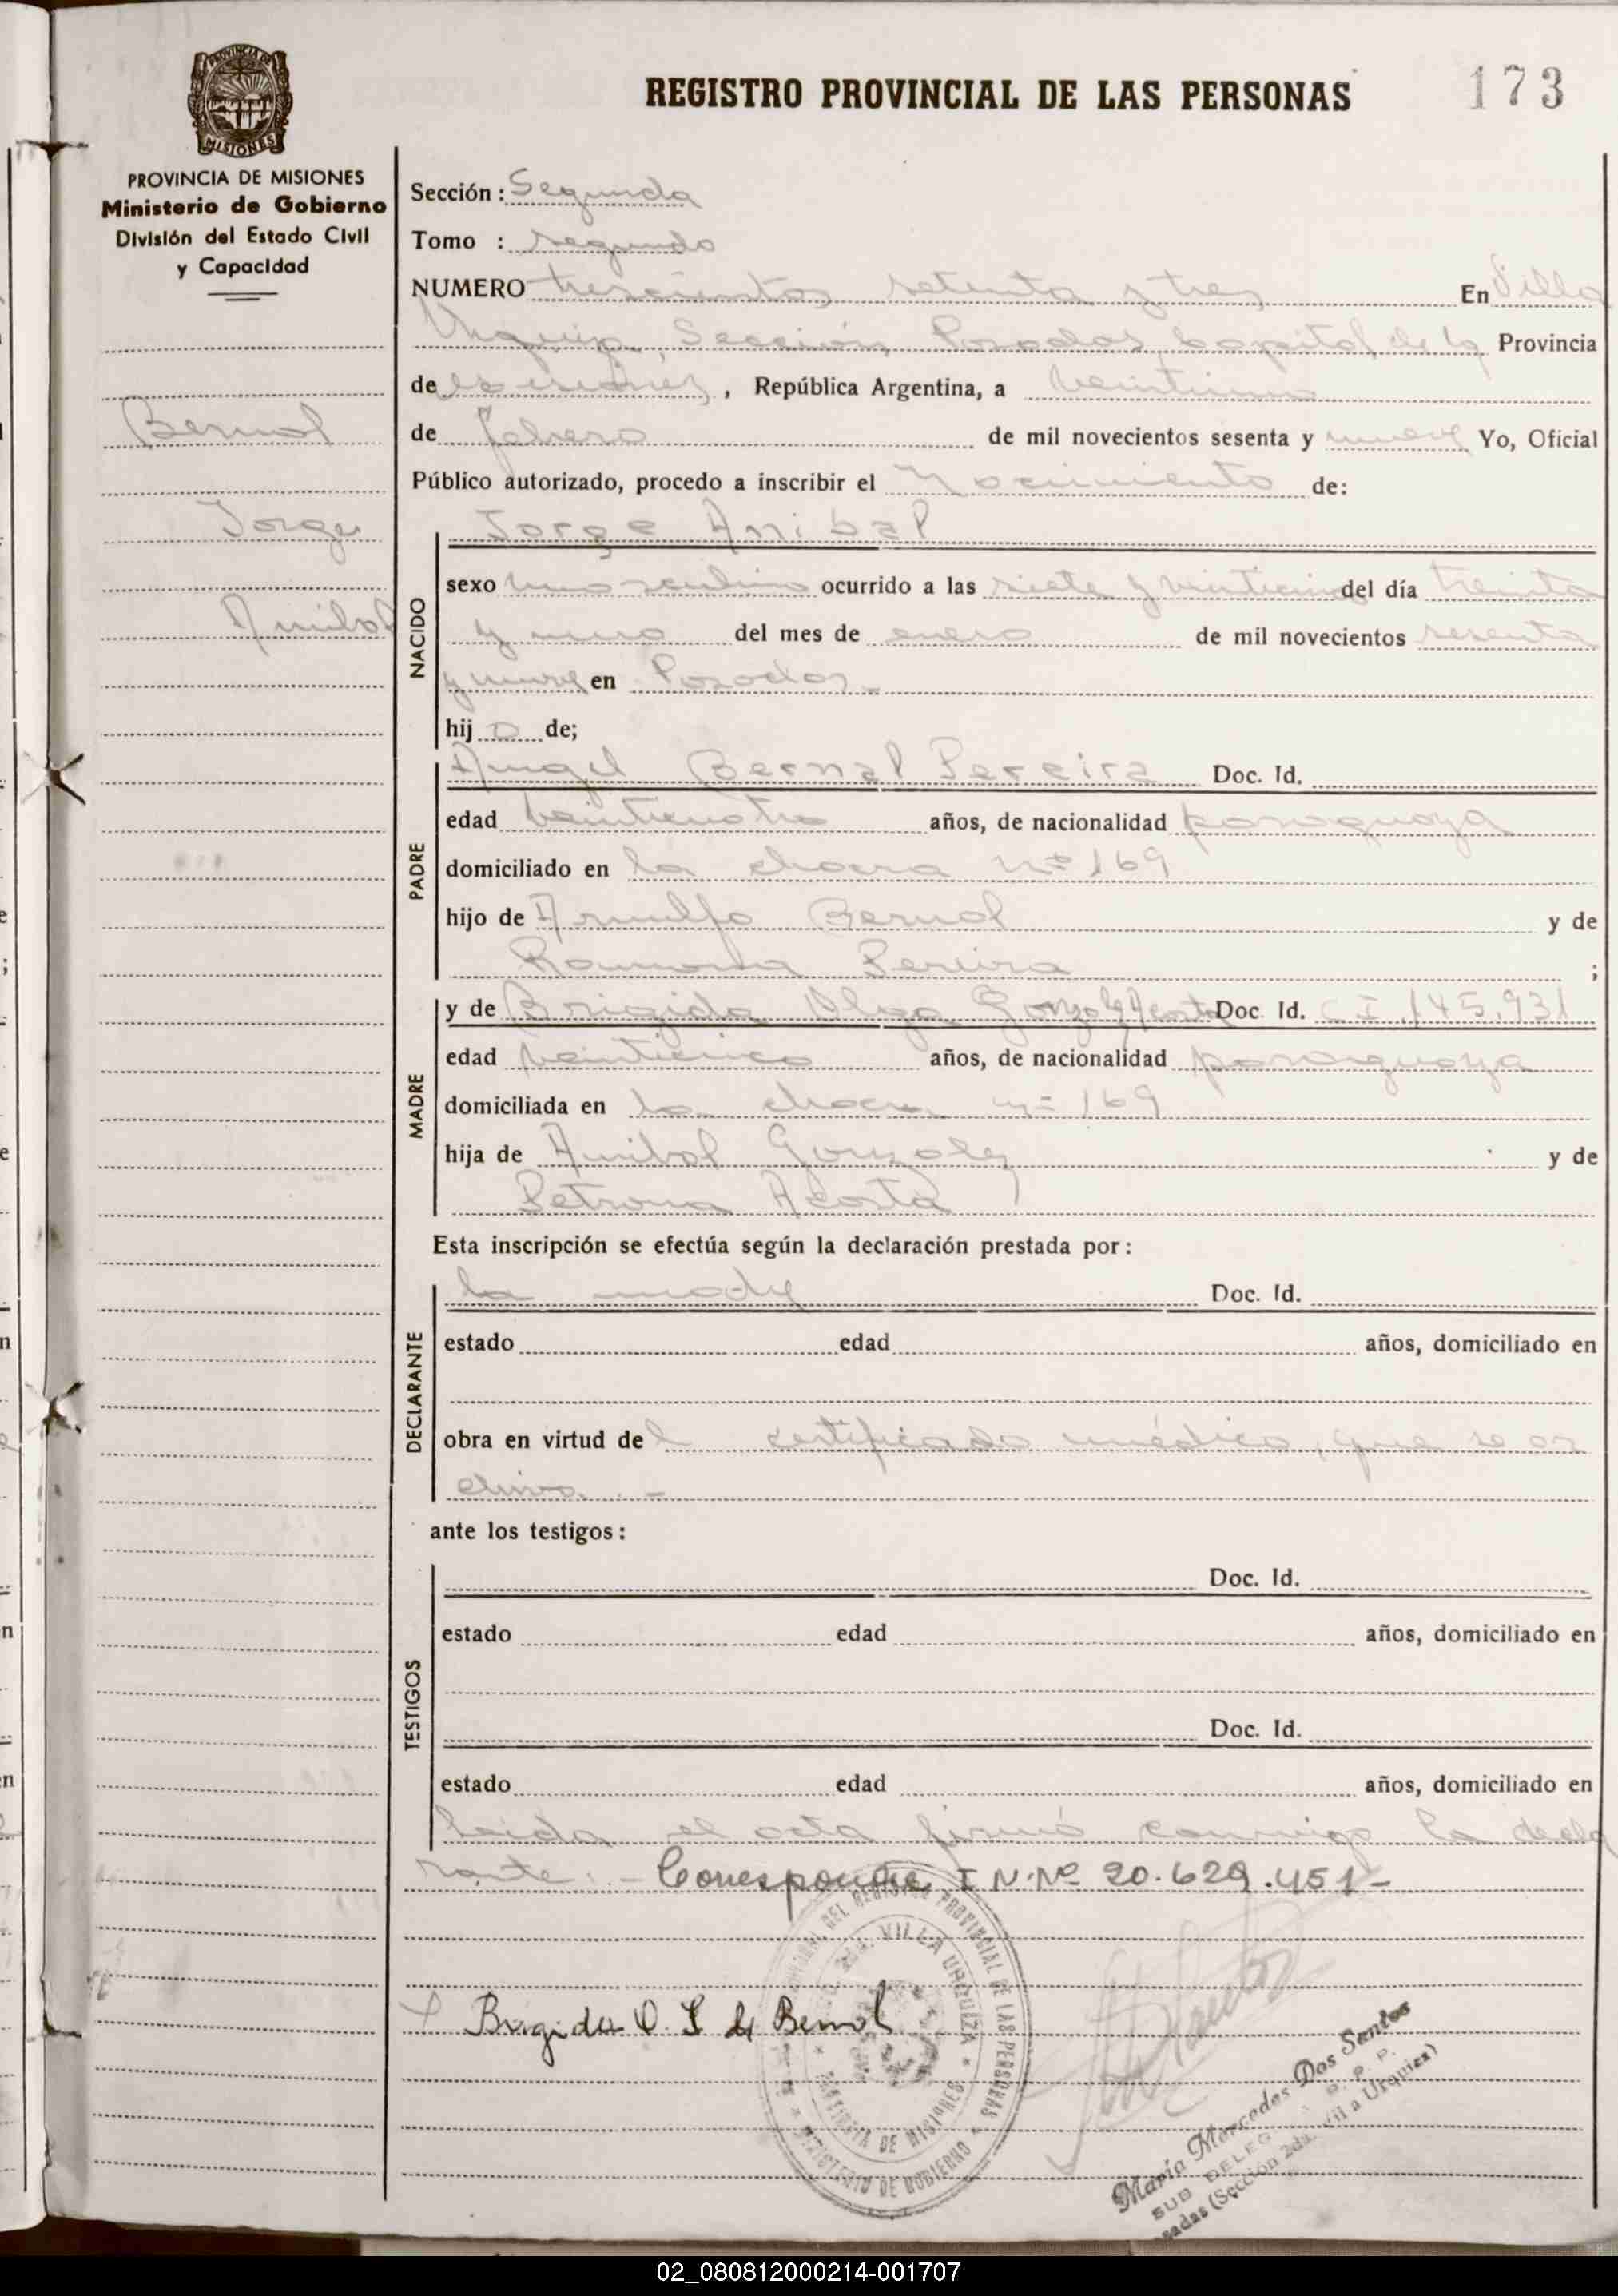 REGISTRO PROVINCIAL DE LAS PERSONAS 173
PROVINCIA DE MISIONES
MISIONES
PROVINCIA DE MISIONES
Ministerio de Gobierno
División del Estado Civil
y Capacidad
Bernal
Jorge
Anibal
Sección: Segunda
Tomo : segundo
NUMERO trescientos setenta y tres En Villa
Urquiza, Sección Posadas, Capital de la Provincia
de Misiones, República Argentina, a veintiuno
de febrero de mil novecientos sesenta y nueve Yo, Oficial
Público autorizado, procedo a inscribir el Nacimiento de:
NACIDO
Jorge Anibal
sexo masculino ocurrido a las siete y veinticinco del día treinta
y uno del mes de enero de mil novecientos sesenta
y nueve en Posadas.-
hij o de;
PADRE
Angel Bernal Pereira Doc. Id.
edad veinticuatro años, de nacionalidad paraguaya
domiciliado en la chacra nº 169
hijo de Arnulfo Bernal y de
Ramona Pereira ;
MADRE
y de Brigida Olga Gonzalez Acosta Doc. Id. C I. 145.931
edad veinticinco años, de nacionalidad paraguaya
domiciliada en la chacra nº 169
hija de Anibal Gonzalez y de
Petrona Acosta
Esta inscripción se efectúa según la declaración prestada por:
DECLARANTE
la madre Doc. Id.
estado edad años, domiciliado en
obra en virtud del certificado médico, que se ar
chiva.-
ante los testigos:
TESTIGOS
Doc. Id.
estado edad años, domiciliado en
Doc. Id.
estado edad años, domiciliado en
Leida el acta firmó conmigo la decla
rante.- Corresponde I N. Nº 20.629.451-
DEL REGISTRO PROVINCIAL DE LAS PERSONAS * MINISTERIO DE GOBIERNO *
VILLA URQUIZA * DE MISIONES
Brigida O. G de Bernal
María Mercedes Dos Santos
SUB DELEG R. P. P.
sadas (Sección 2da. Villa Urquiza)
02_080812000214-001707